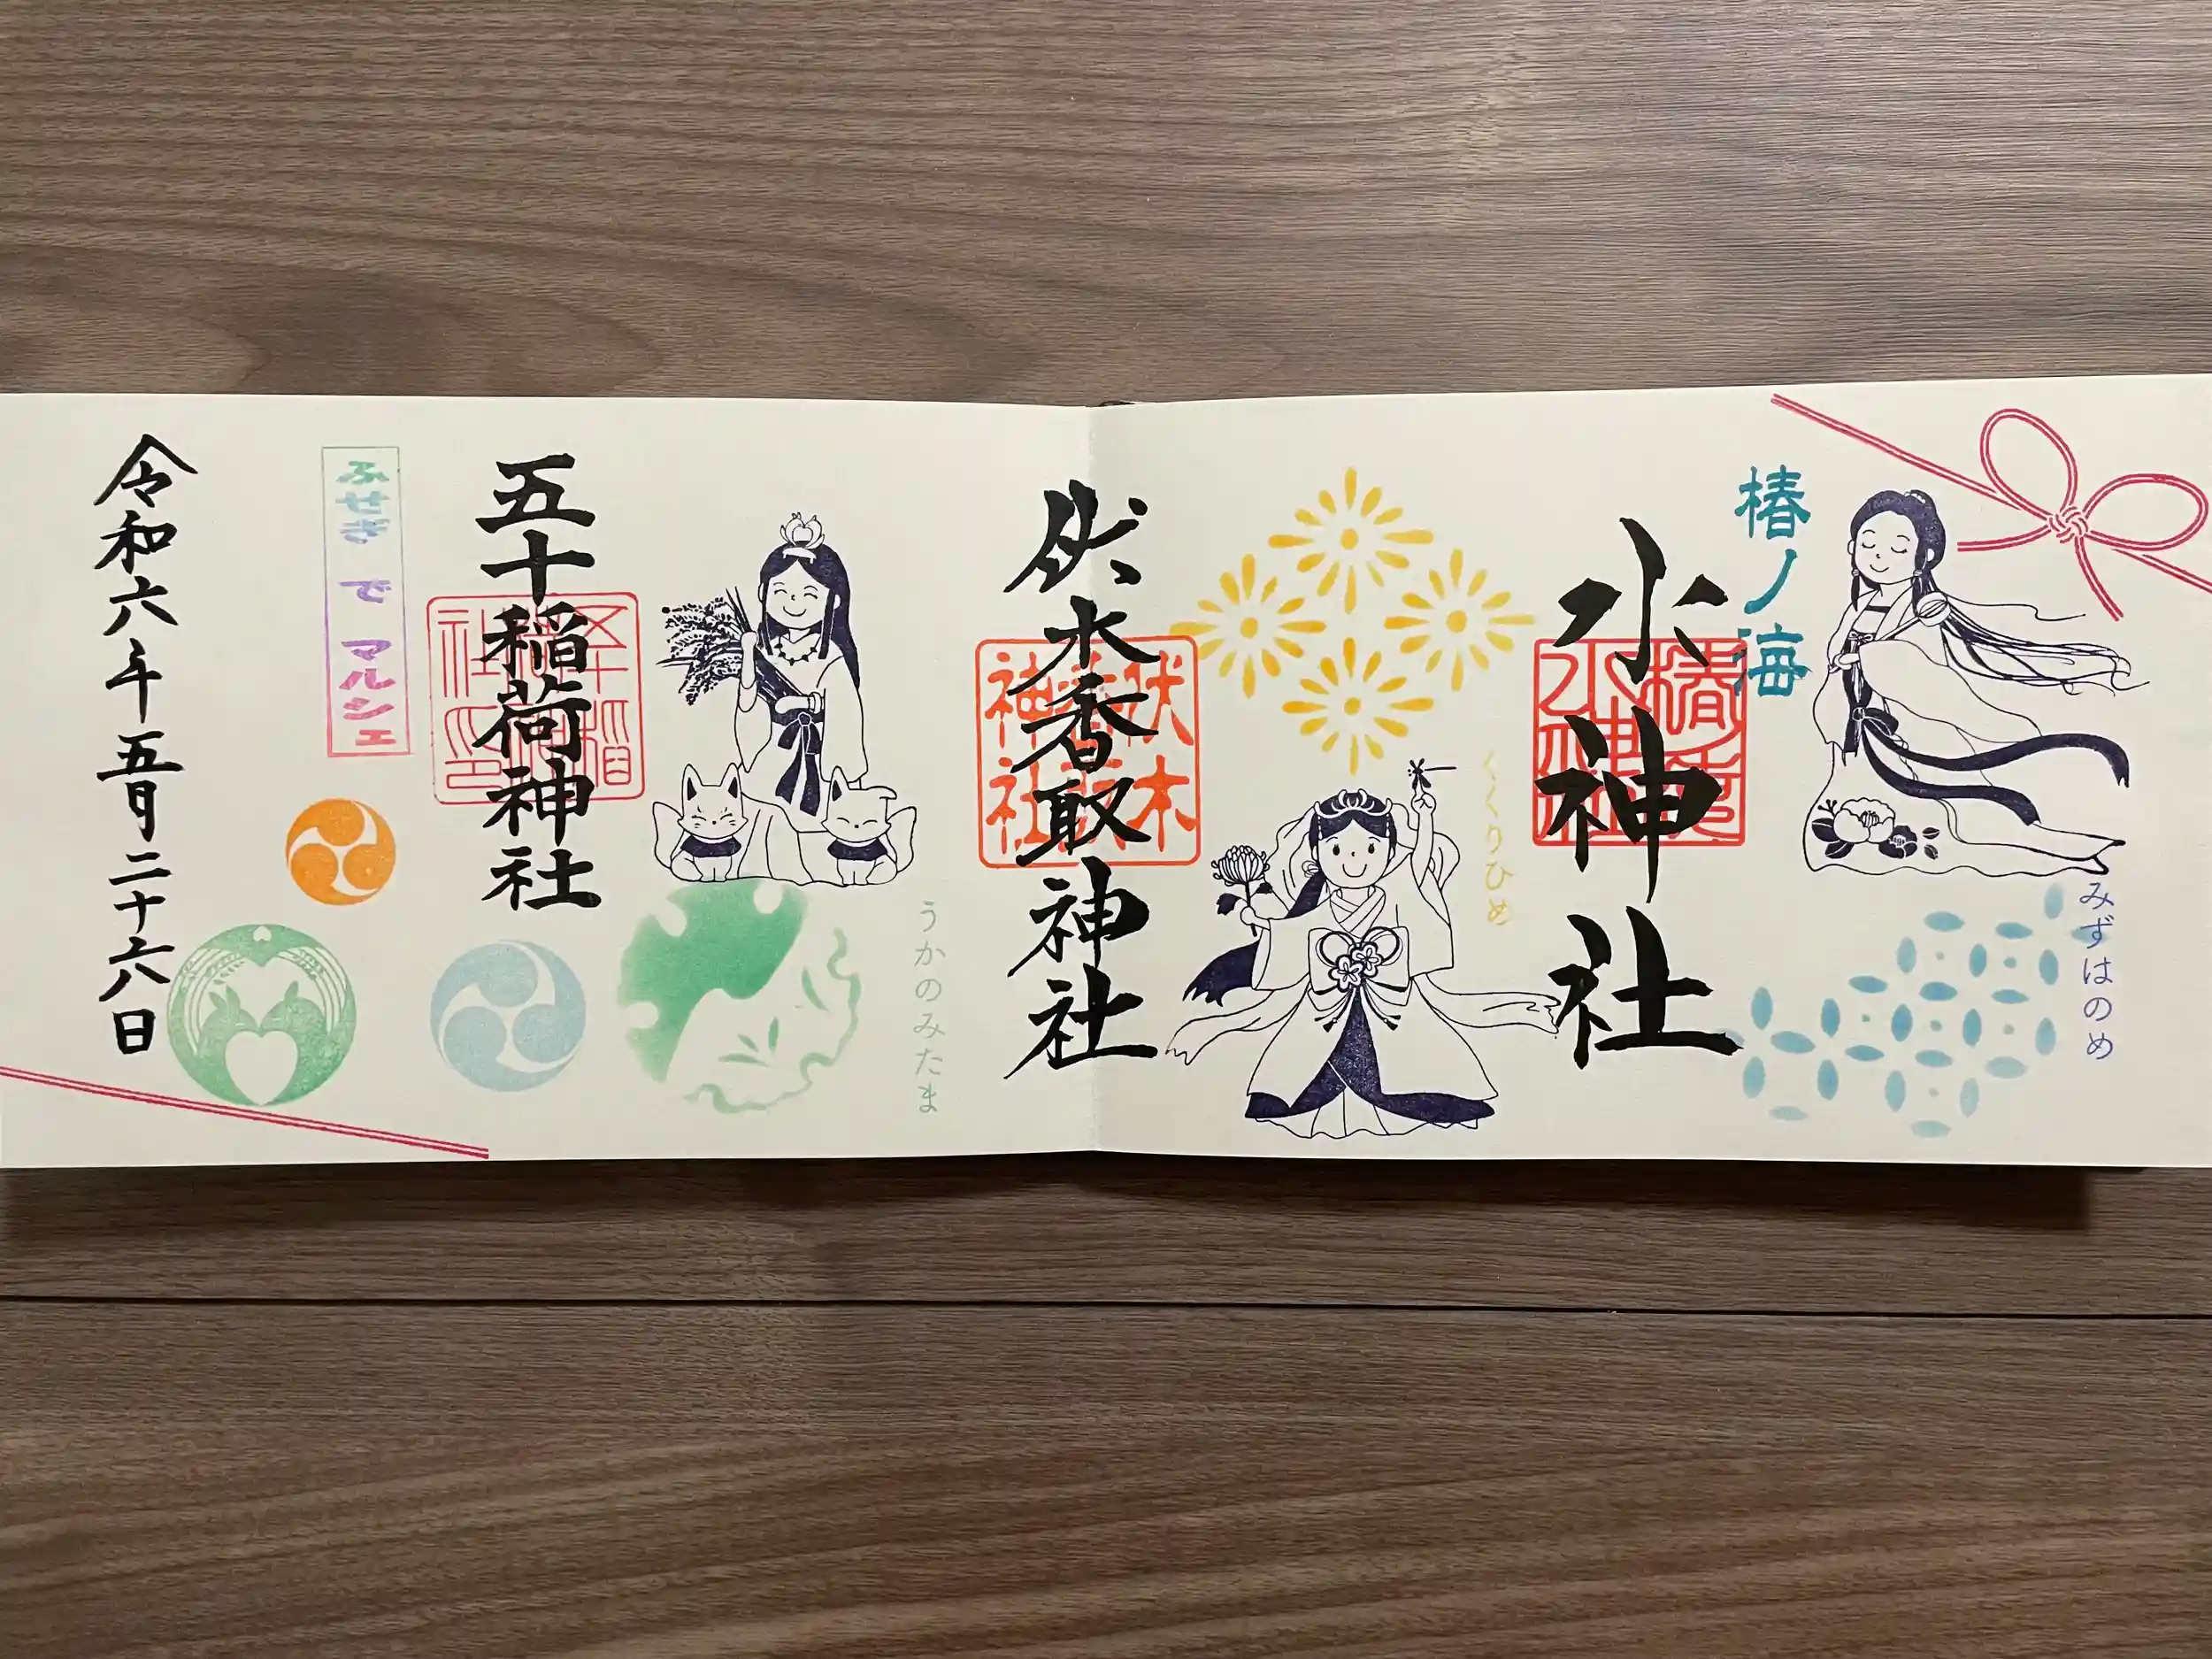 椿ノ海
水神社
みずはのめ
椿海
水神社
くくりひめ
伏木香取神社
伏木
香取
神社
うかのみたま
五十稲荷神社
ふせぎ で マルシェ
令和六年五月二十六日